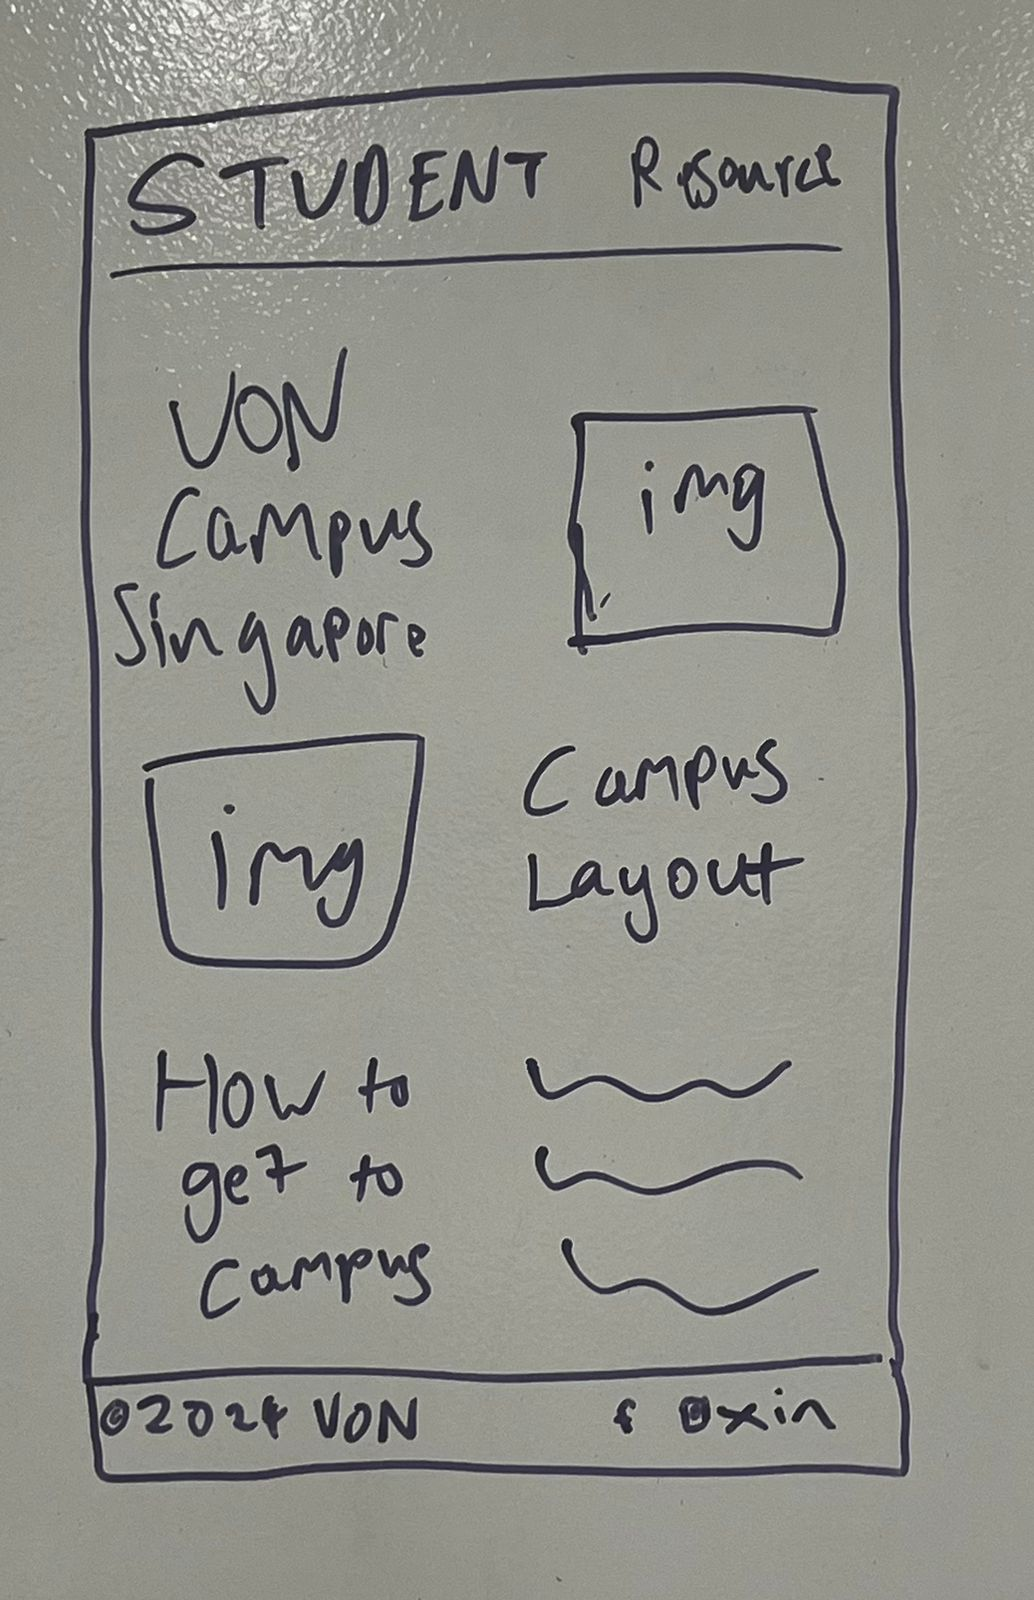 STUDENT Resource
VON
Campus
Singapore
img
img
Campus
Layout
How to
get to
Campus
©2024 VON
f x in